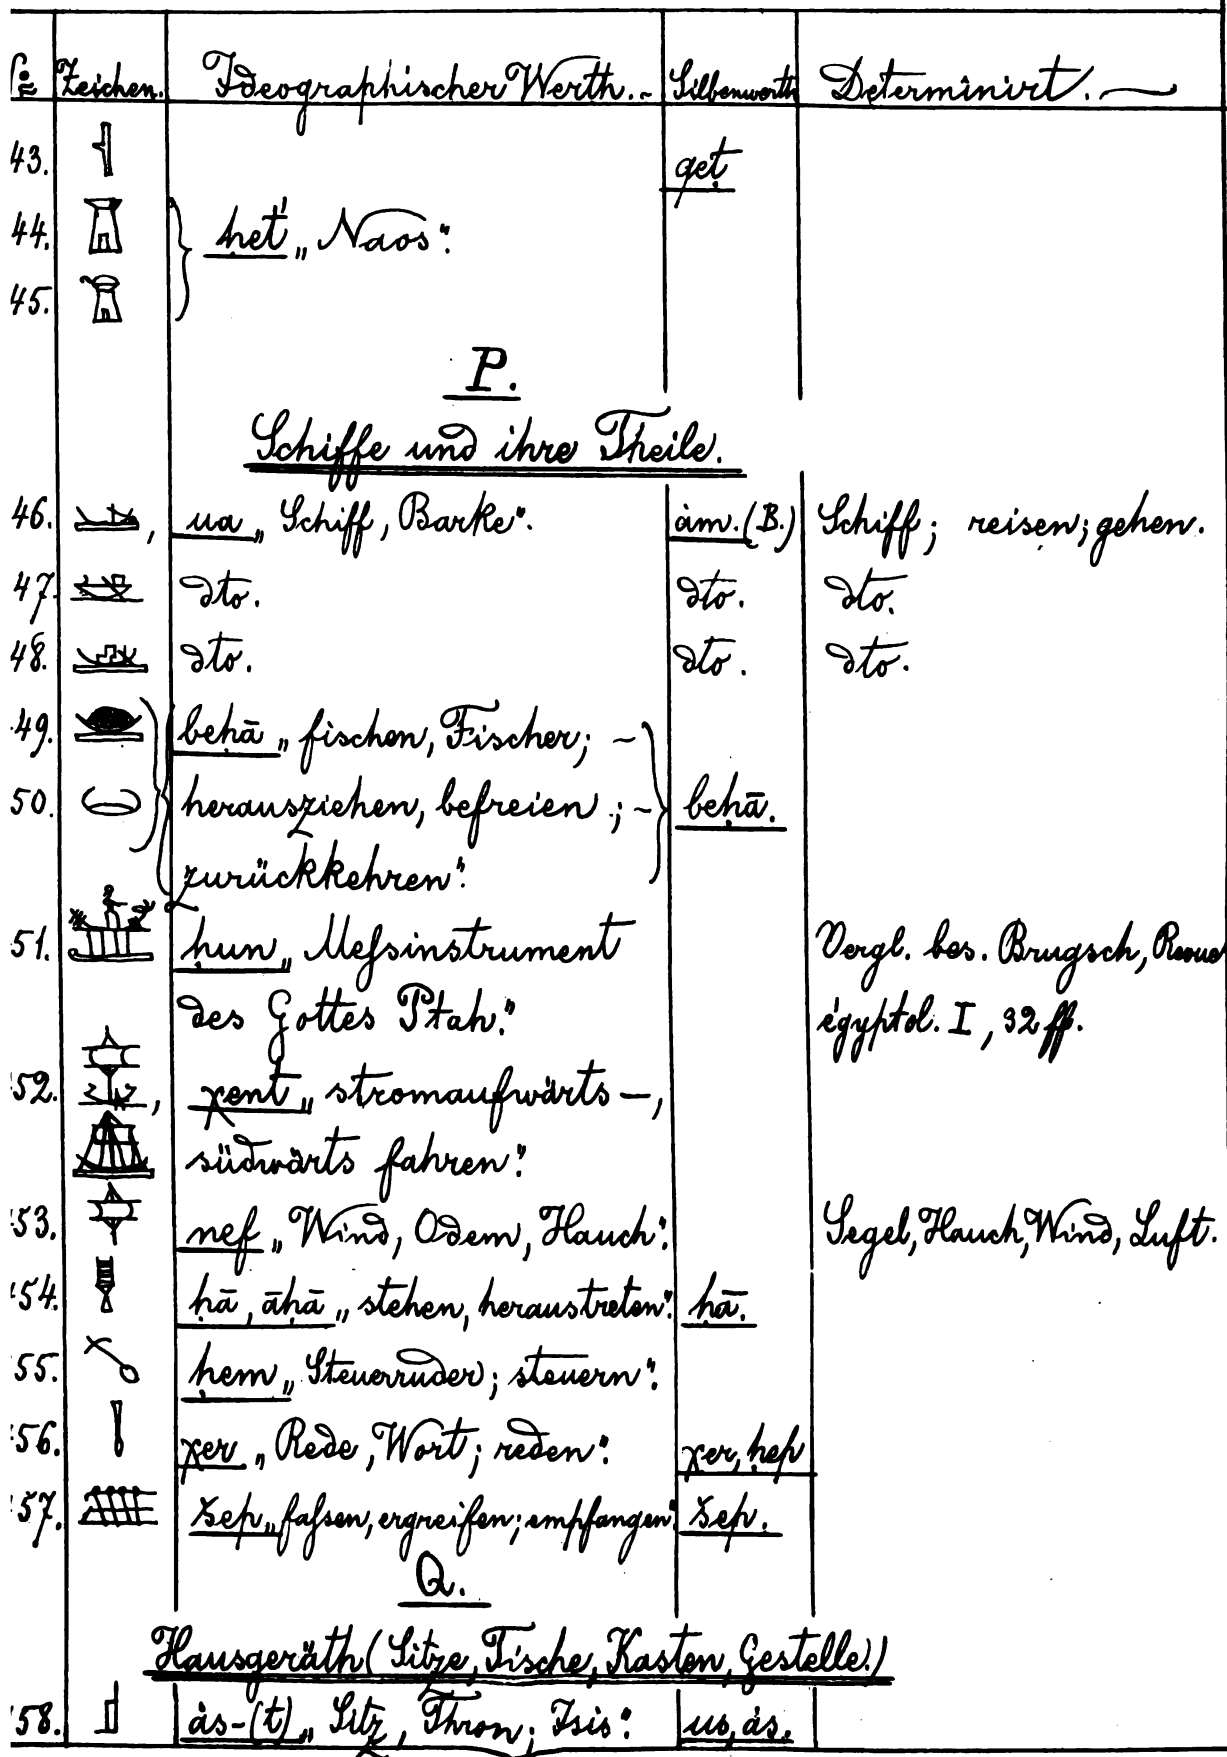 Zeichen. Ideographischer Werth. - Silbenwerth Determinirt. —
43. get
44. ḥet' „Naos".
45.
P.
Schiffe und ihre Theile.
46. , ua „Schiff, Barke". ȧm. (B.) Schiff; reisen; gehen.
47. dto. dto. dto.
48. dto. dto. dto.
49. beḥā „fischen, Fischer; -
50. herausziehen, befreien; - beḥā.
zurückkehren".
51. ḥun „Messinstrument Vergl. bes. Brugsch, Revue
des Gottes Ptah." égyptol. I, 32 ff.
52. , χent „stromaufwärts —,
südwärts fahren".
53. nef „Wind, Odem, Hauch". Segel, Hauch, Wind, Luft.
54. ḥā, āḥā „stehen, heraustreten". ḥā.
55. ḥem „Steuerruder; steuern".
56. χer „Rede, Wort; reden". χer, ḥep
57. šep „fassen, ergreifen; empfangen". šep.
Q.
Hausgeräth (Sitze, Tische, Kasten, Gestelle.)
58. ȧs-(t) „Sitz, Thron; Isis". us, ȧs.